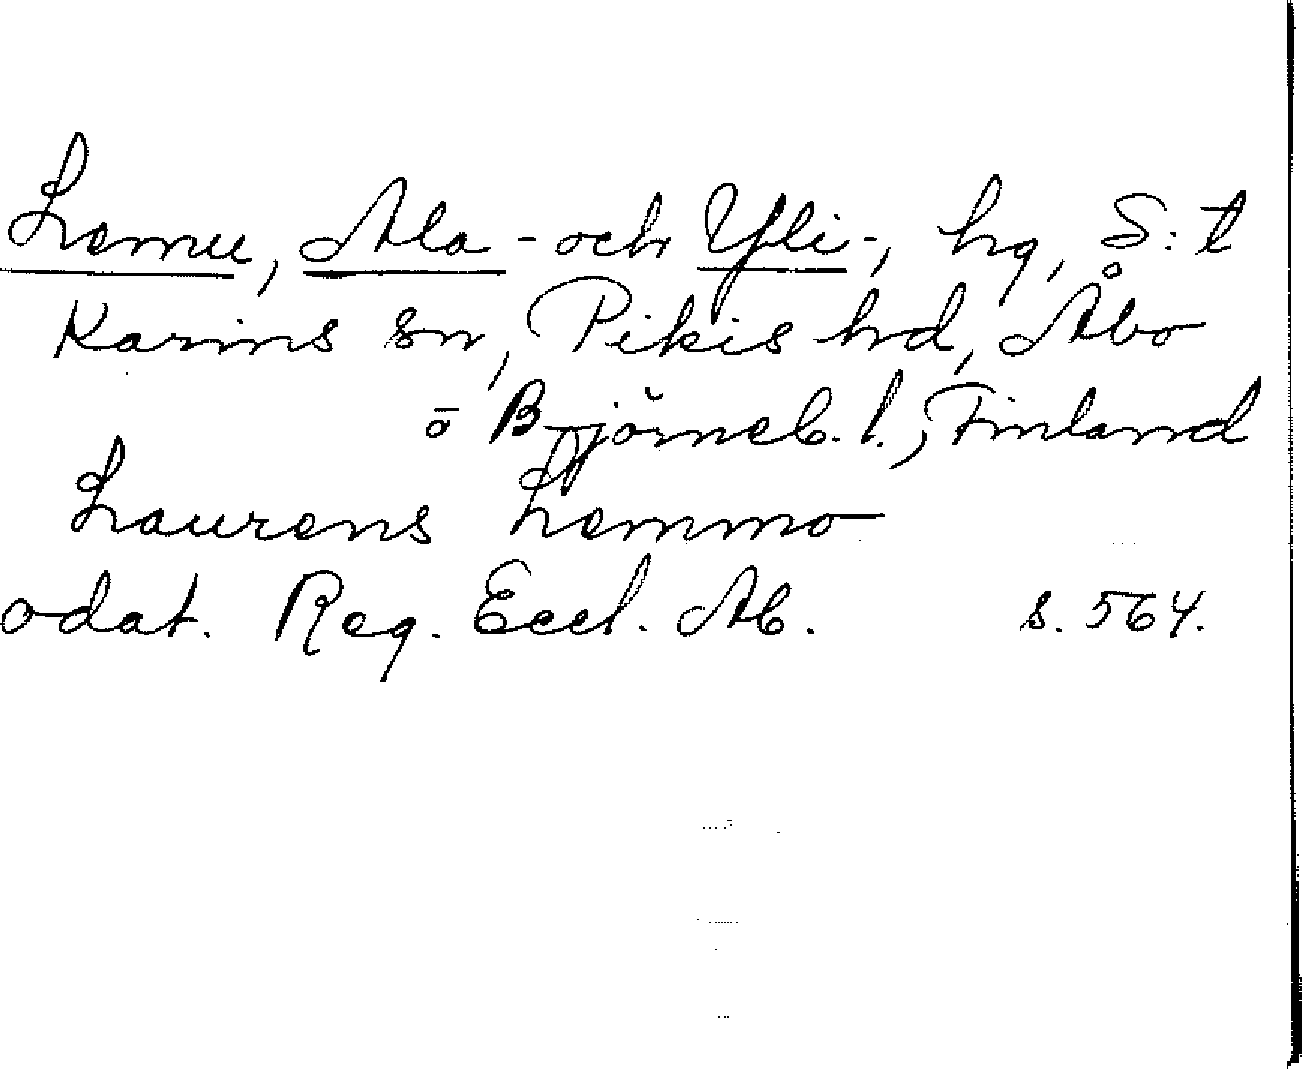 Lemu, Ala- och Yli-, hg, S:t
Karins sn, Pikis hd, Åbo
o Björneb. l., Finland
Laurens Lemmo
odat. Reg. Eccl. Ab. s. 564.